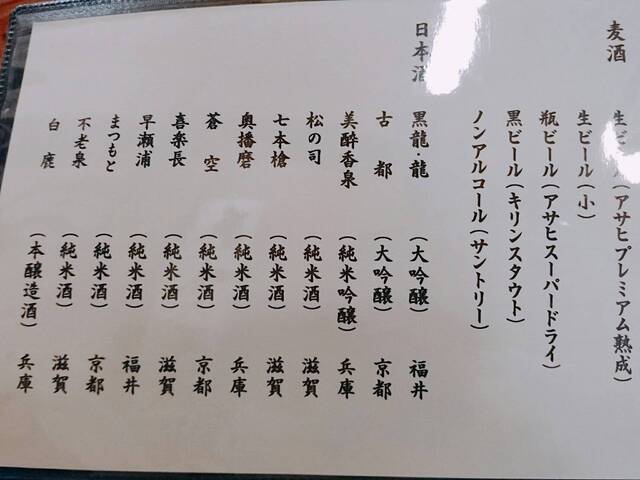 麦酒
生ビール(アサヒプレミアム熟成)
生ビール(小)
瓶ビール(アサヒスーパードライ)
黒ビール(キリンスタウト)
ノンアルコール(サントリー)
日本酒
黒龍・龍 (大吟醸) 福井
古都 (大吟醸) 京都
美酔香泉 (純米吟醸) 兵庫
松の司 (純米酒) 滋賀
七本槍 (純米酒) 滋賀
奥播磨 (純米酒) 兵庫
蒼空 (純米酒) 京都
喜楽長 (純米酒) 滋賀
早瀬浦 (純米酒) 福井
まつもと (純米酒) 京都
不老泉 (純米酒) 滋賀
白鹿 (本醸造酒) 兵庫